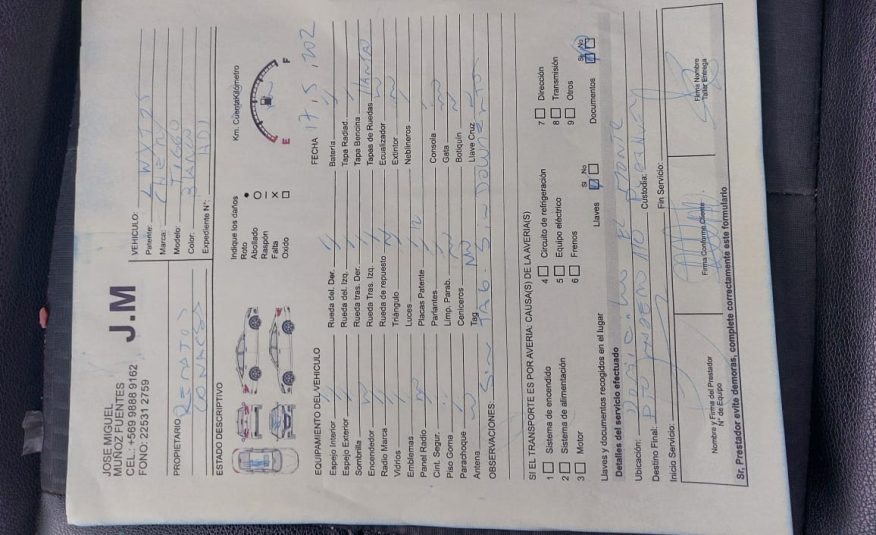 JOSE MIGUEL
MUÑOZ FUENTES
CEL.: +569 9888 9162
FONO: 22531 2759
J.M
PROPIETARIO
VEHICULO:
Patente:
Marca: CHERY
Modelo: TIGGO
Color: BLANCO
Expediente N°:
ESTADO DESCRIPTIVO
Indique los daños
Roto ●
Abollado ○
Raspón –
Falta ×
Oxido □
Km. Cuentakilómetro
E F
FECHA 17, 5, 202
EQUIPAMIENTO DEL VEHICULO
Espejo Interior Rueda del. Der. Batería
Espejo Exterior Rueda del. Izq. Tapa Radiad.
Sombrilla Rueda tras. Der. Tapa Bencina
Encendedor Rueda Tras. Izq. Tapas de Ruedas
Radio Marca Rueda de repuesto Ecualizador
Vidrios Triángulo Extintor
Emblemas Luces Neblineros
Panel Radio Placas Patente
Cint. Segur. Parlantes Consola
Piso Goma Limp. Parab. Gata
Parachoque Ceniceros Botiquín
Antena Tag NO Llave Cruz
OBSERVACIONES: SIN TAG. SIN DOCUMENTOS
SI EL TRANSPORTE ES POR AVERIA: CAUSA(S) DE LA AVERIA(S)
1 Sistema de encendido 4 Circuito de refrigeración 7 Dirección
2 Sistema de alimentación 5 Equipo eléctrico 8 Transmisión
3 Motor 6 Frenos 9 Otros
Llaves y documentos recogidos en el lugar Llaves SI No Documentos SI No
Detalles del servicio efectuado
Ubicación:
Destino Final: Custodia:
Inicio Servicio: Fin Servicio:
Nombre y Firma del Prestador
N° de Equipo
Firma Conforme Cliente
Firma Nombre
Taller Entrega
Sr, Prestador evite demoras, complete correctamente este formulario